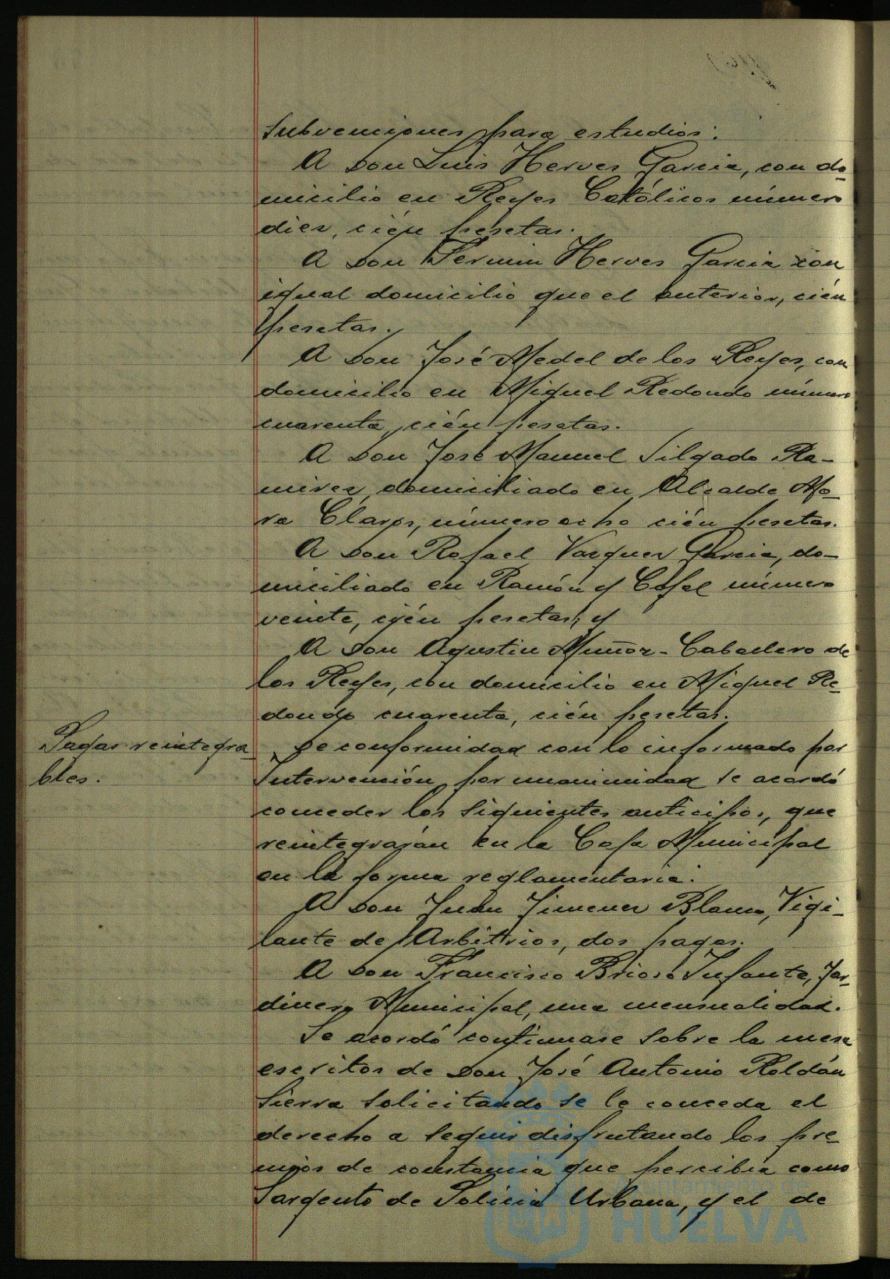 subvenciones para estudios:
A Don Luis Herves Garcia, con do-
micilio en Reyes Católicos número
diez, cién pesetas.
A Don Fermin Herves Garcia con
igual domicilio que el anterior, cién
pesetas.
A Don José Medel de los Reyes, con
domicilio en Miguel Redondo número
cuarenta, cién pesetas.
A Don José Manuel Silgado Ra-
mirez, domiciliado en Alcalde Mo-
ra Claros, número ocho cién pesetas.
A Don Rafael Vazquez Garcia, do-
miciliado en Ramón y Cajal número
veinte, cién pesetas, y
A Don Agustin Muñoz-Caballero de
los Reyes, con domicilio en Miguel Re-
dondo cuarenta, cién pesetas.
Pagas reintegra-
bles.
De conformidad con lo informado por
Intervención, por unanimidad se acordó
conceder los siguientes anticipos, que
reintegrarán en la Caja Municipal
en la forma reglamentaria:
A Don Juan Jimenez Blanco, Vigi-
lante de Arbitrios, dos pagas.
A Don Francisco Brioso Infante, Jar-
dinero Municipal, una mensualidad.
Se acordó continuase sobre la mesa
escritos de Don José Antonio Roldán
Sierra solicitando se le conceda el
derecho a seguir disfrutando los pre-
mios de constancia que percibia como
Sargento de Policia Urbana, y el de
Ayuntamiento de
HUELVA